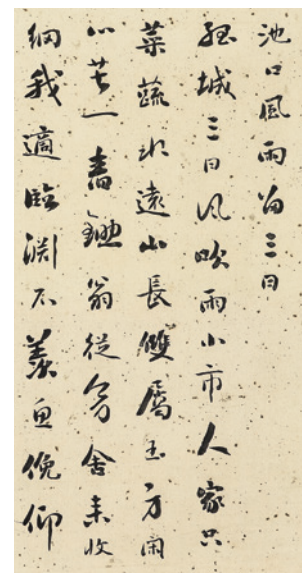 池口風雨留三日
孤城三日風吹雨小市人家只
菜蔬水遠山長雙屬玉身閑
心苦一舂鋤翁從旁舍来收
網我適臨淵不羨魚俛仰